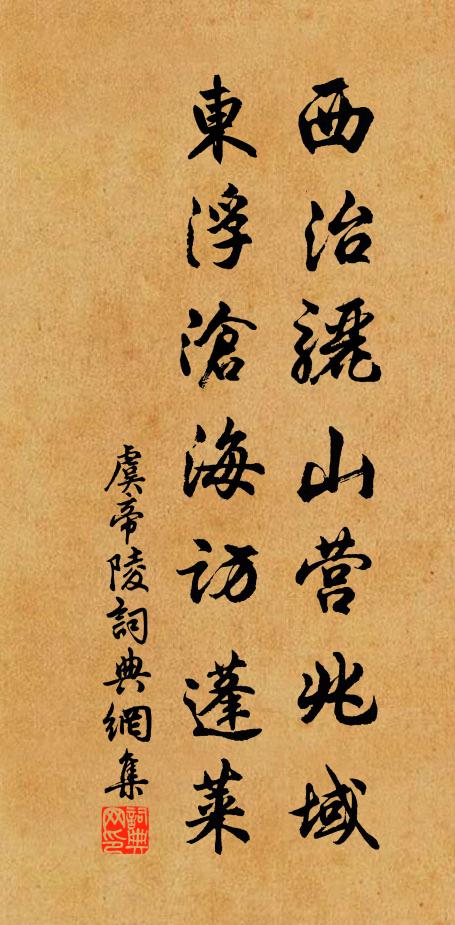 西治骊山营兆域
東浮滄海訪蓬萊
虞帝陵詞典網集
詞典網印